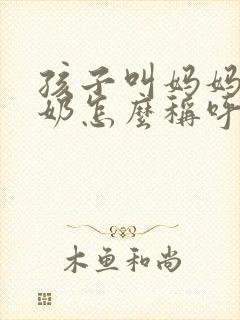 孩子叫妈妈
奶怎麼稱呼
木鱼和尚